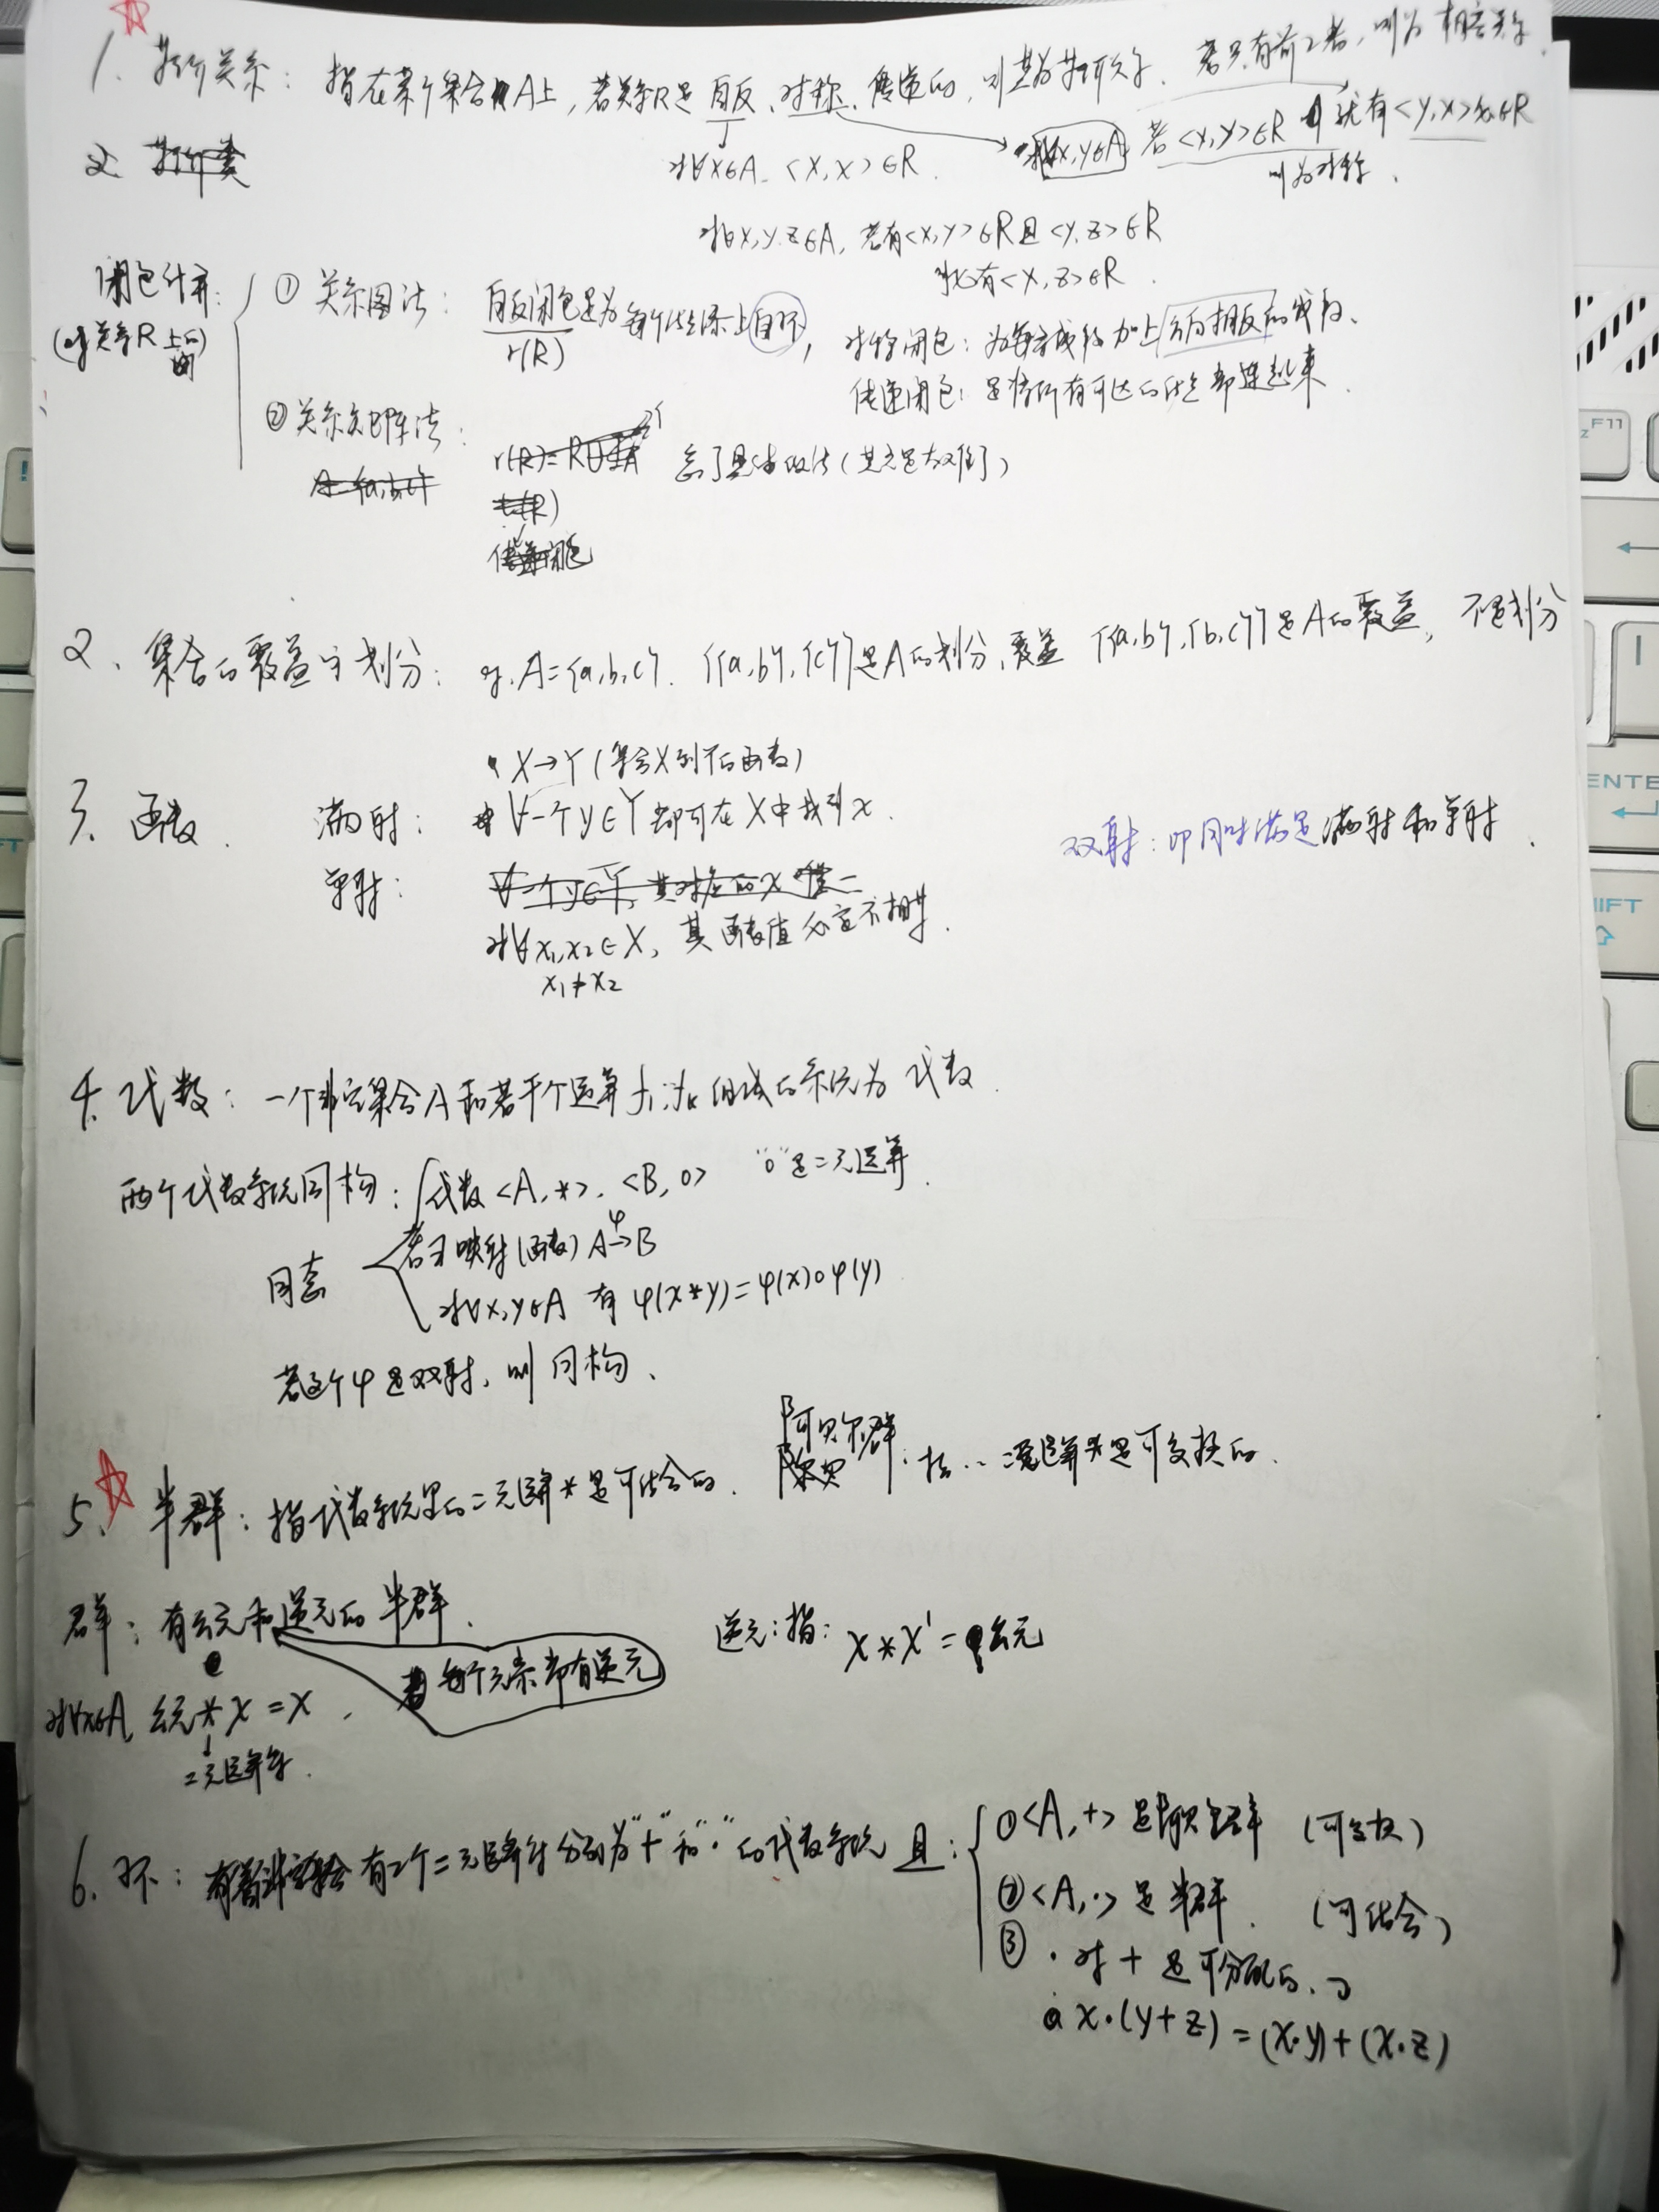 1. 等价关系：指在某个集合A上，若关系R是自反、对称、传递的，则其为等价关系. 若只有前2者，则为相容关系.
对∀x∈A. <x,x>∈R.
对∀x,y∈A 若<x,y>∈R 就有<y,x>∈R
则为对称.
2. 等价类
对∀x,y,z∈A, 若有<x,y>∈R且<y,z>∈R
就有<x,z>∈R.
闭包计算:
(对关系R上的)
① 关系图法: 自反闭包是为每个结点添上自环,
r(R)
对称闭包: 为每条线段加上方向相反的线段、
传递闭包: 是将所有可达的结点都连起来.
② 关系矩阵法:
A={a,b,c}
忘了具体做法(其实是太难了)
t(R)
传递闭包
2、集合的覆盖与划分: A={a,b,c}. {{a,b},{c}}是A的划分、覆盖 {{a,b},{b,c}}是A的覆盖, 不是划分
3、函数.
X→Y (集合X到Y的函数)
满射: ∀一个y∈Y 都可在X中找到x.
单射: ∀一个y∈Y, 其对应的x唯一
对∀x₁,x₂∈X, 其函数值必定不相等.
x₁≠x₂
双射: 即同时满足满射和单射.
4. 代数: 一个非空集合A和若干个运算 组成的系统为代数.
两个代数系统同构: 代数<A,*>. <B,o> "o"是二元运算.
同态
若∃映射(函数) A→B
φ
对∀x,y∈A 有 φ(x*y)=φ(x)oφ(y)
若这个φ是双射, 则同构、
5、半群: 指代数系统里的二元运算*是可结合的.
阿贝尔群: 指.. 二元运算*是可交换的.
群: 有幺元和逆元的半群.
每个元素都有逆元
逆元: 指: x*x'=幺元
对∀x∈A, 幺元*x=x.
二元运算符.
6、环: 有2个二元运算符分别为"+"和"·"的代数系统 且:
①<A,+>是阿贝尔群 (可交换)
②<A,·>是半群. (可结合)
③ ·对+是可分配的.
x·(y+z)=(x·y)+(x·z)
ENTE
F11